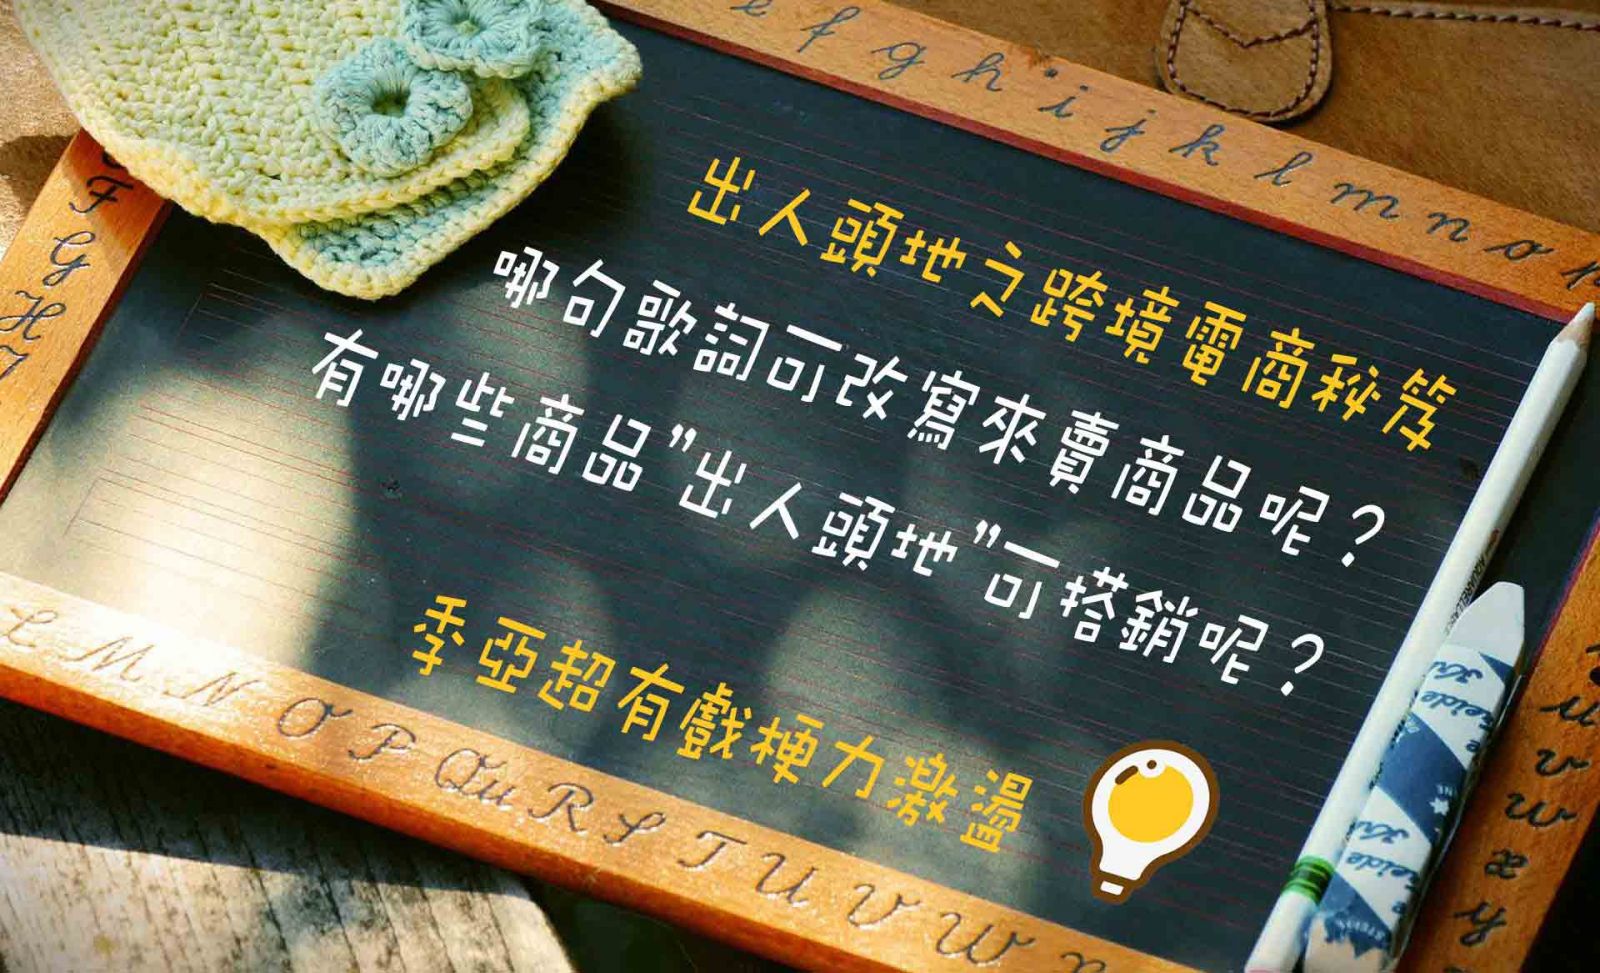 e f g h i j k l m n o
出人頭地之跨境電商秘笈
哪句歌詞可改寫來賣商品呢？
有哪些商品"出人頭地"可搭銷呢？
季亞超有戲梗力激盪
F
G
H
L M N O P Qu R S T U V W
u
v
w
x
y